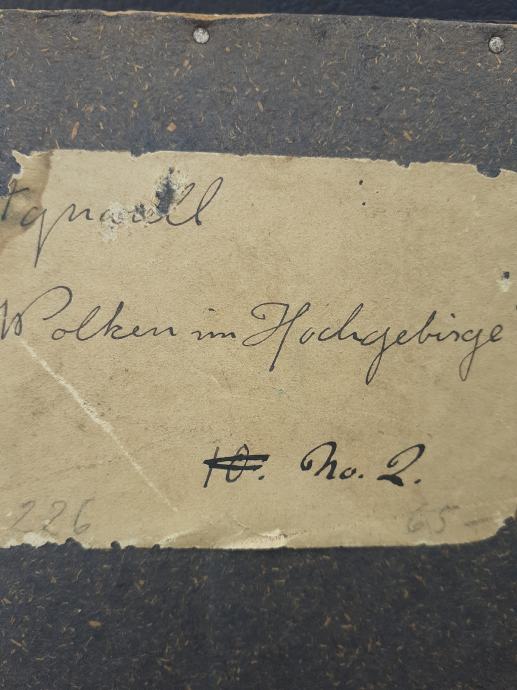 Aquarell
Wolken im Hochgebirge
10. No. 2.
226 65-